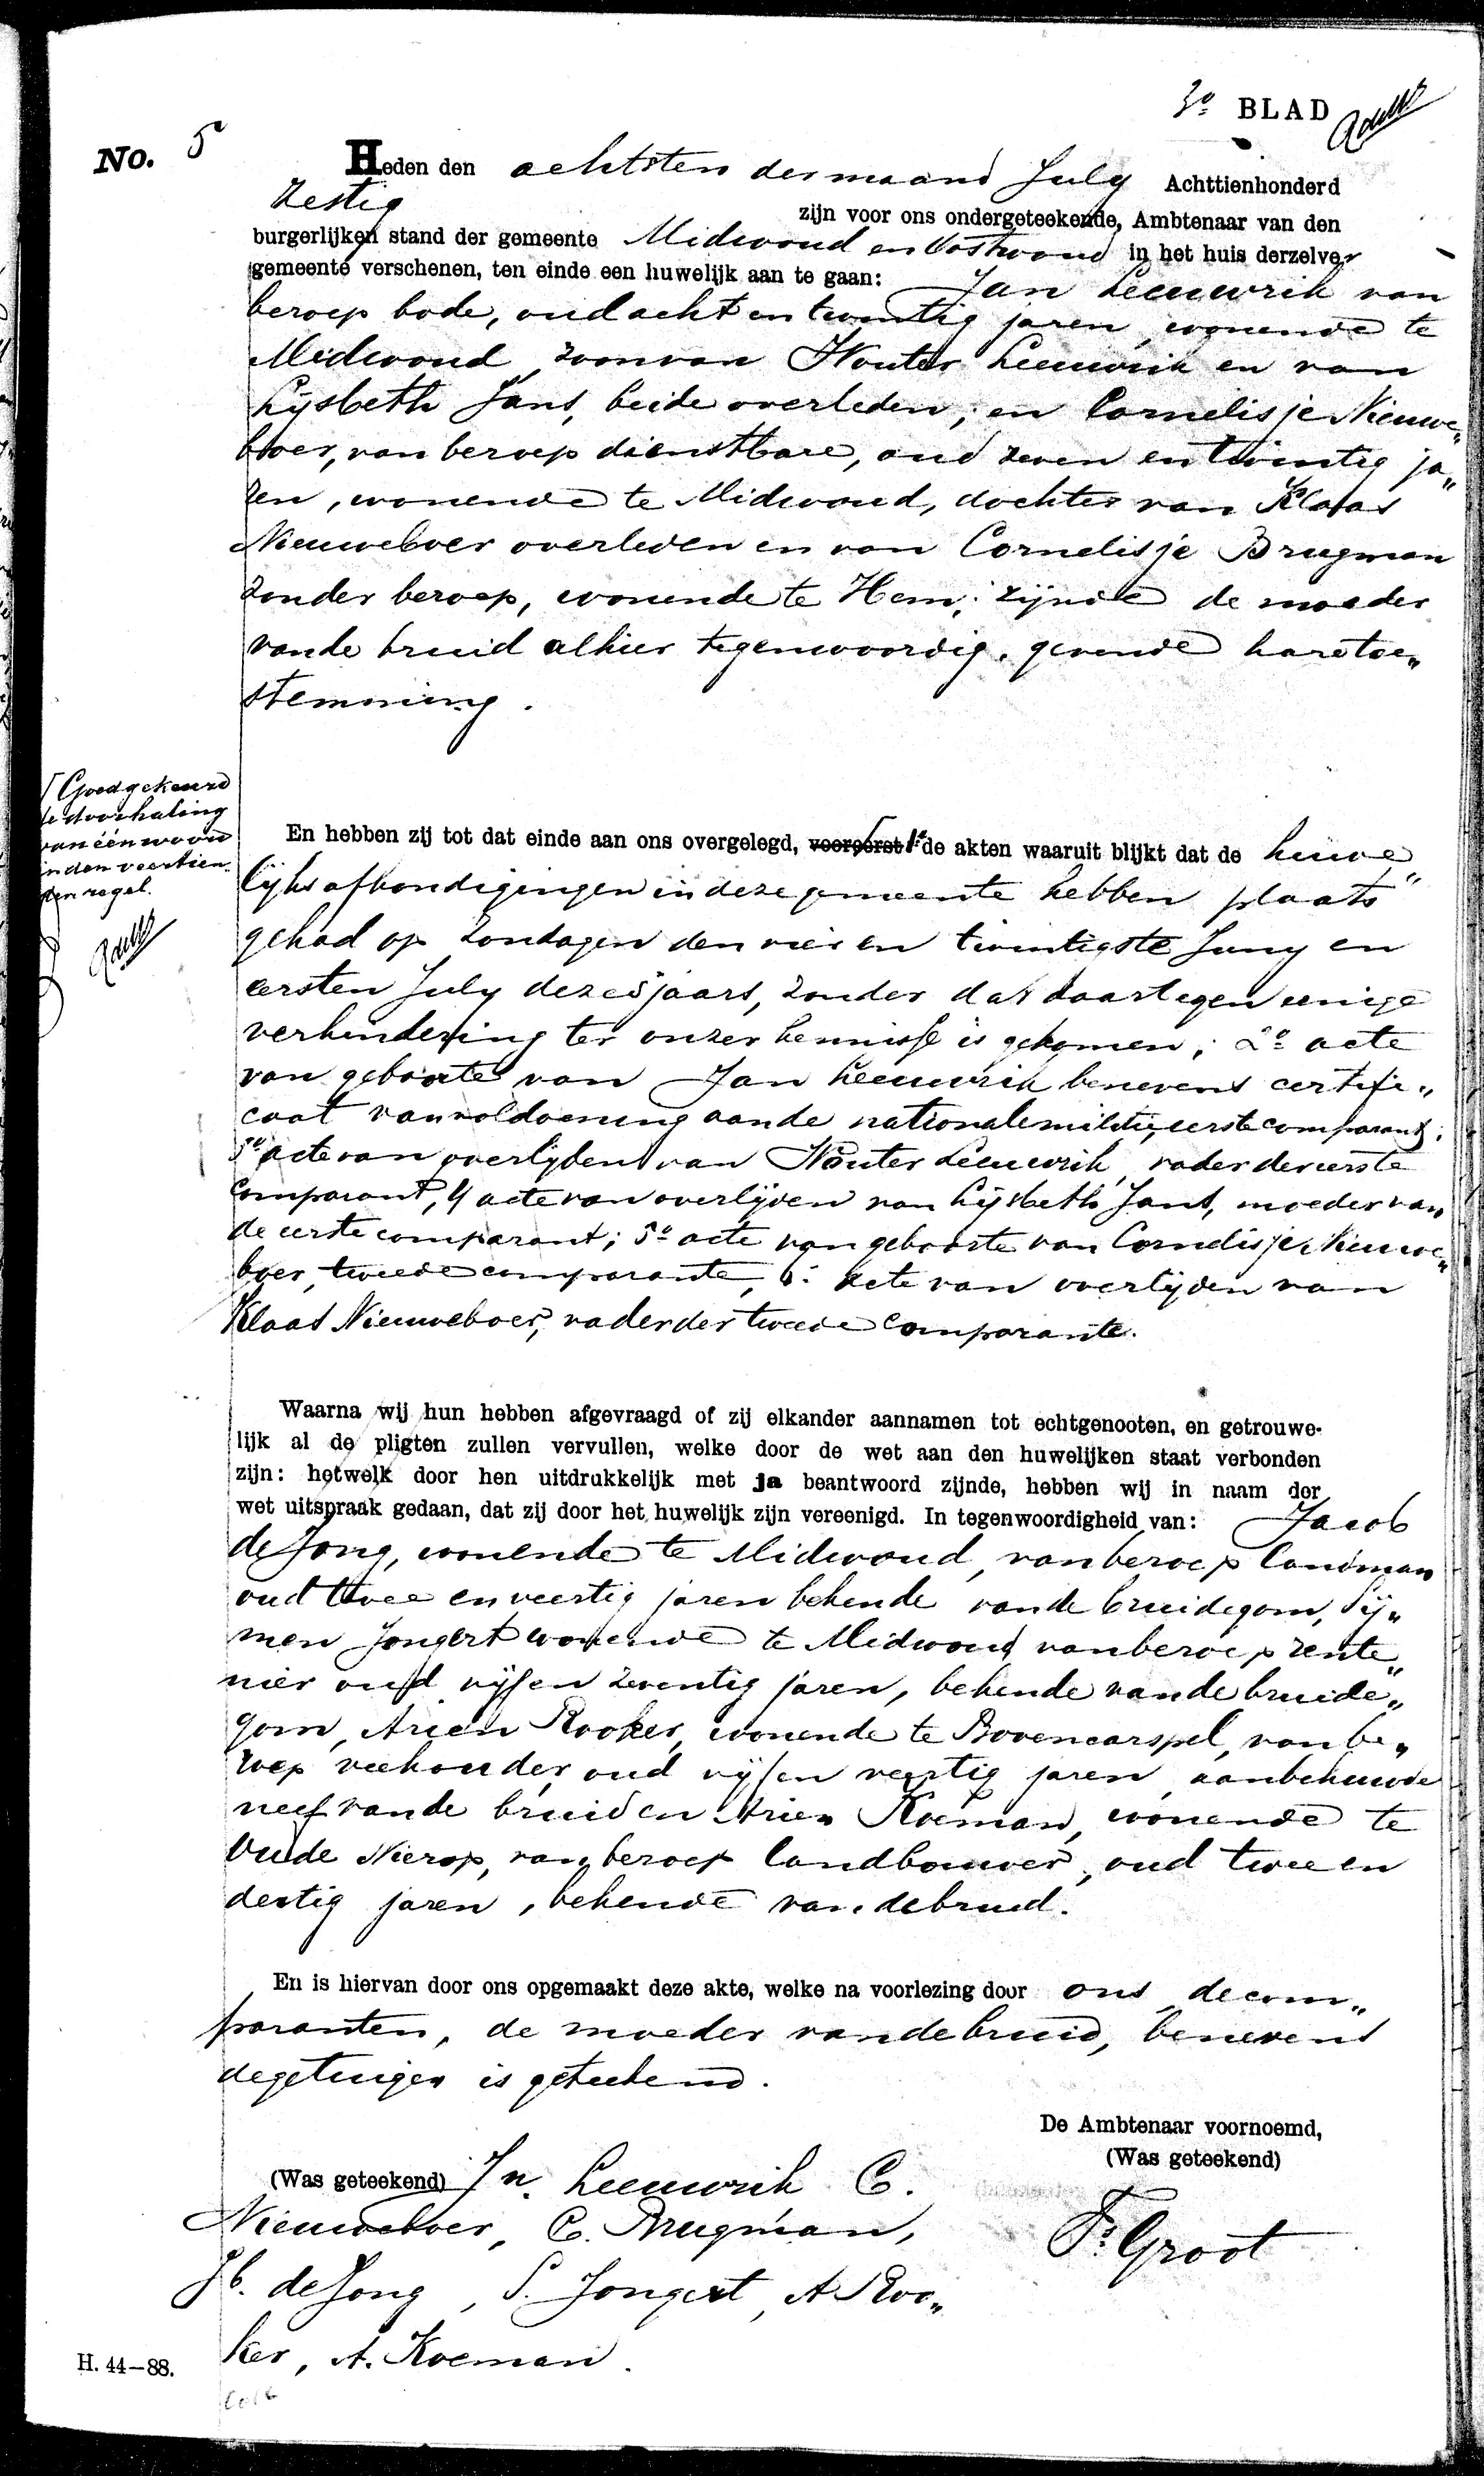 3e BLAD
No. 5
Heden den achtsten der maand July Achttienhonderd
Zestig
zijn voor ons ondergeteekende, Ambtenaar van den
burgerlijken stand der gemeente Midwoud en Oostwoud in het huis derzelver
gemeente verschenen, ten einde een huwelijk aan te gaan: Jan Leeuwrik van
beroep bode, oud acht en twintig jaren, wonende te
Midwoud, zoon van Wouter Leeuwrik en van
Lijsbeth Jans, beide overleden; en Cornelisje Nieuwe„
boer, van beroep dienstbare, oud zeven en twintig ja„
ren, wonende te Midwoud, dochter van Klaas
Nieuweboer overleden en van Cornelisje Brugman
zonder beroep, wonende te Hem; zijnde de moeder
van de bruid alhier tegenwoordig, gevende hare toe„
stemming.
Goedgekeurd
de doorhaling
van één woord
in den veertien
den regel.
En hebben zij tot dat einde aan ons overgelegd, vooreerst 1e de akten waaruit blijkt dat de huwe„
lijks afkondigingen in deze gemeente hebben plaats
gehad op zondagen den vier en twintigste Juny en
eersten July dezes jaars, zonder dat daartegen eenige
verhindering ter onzer kennisse is gekomen; 2o acte
van geboorte van Jan Leeuwrik benevens certifi„
caat van voldoening aan de nationale militie, eerste comparant;
3o acte van overlijden van Wouter Leeuwrik, vader der eerste
comparant, 4 acte van overlijden van Lijsbeth Jans, moeder van
de eerste comparant; 5o acte van geboorte van Cornelisje Nieuwe„
boer, tweede comparante, 6o acte van overlijden van
Klaas Nieuweboer, vader der tweede comparante.
Waarna wij hun hebben afgevraagd of zij elkander aannamen tot echtgenooten, en getrouwe-
lijk al de pligten zullen vervullen, welke door de wet aan den huwelijken staat verbonden
zijn: hetwelk door hen uitdrukkelijk met ja beantwoord zijnde, hebben wij in naam der
wet uitspraak gedaan, dat zij door het huwelijk zijn vereenigd. In tegenwoordigheid van: Jacob
de Jong, wonende te Midwoud, van beroep landman
oud twee en veertig jaren bekende van de bruidegom, Sij„
men Jongert wonende te Midwoud van beroep rente„
nier oud vijf en zeventig jaren, bekende van de bruide„
gom, Arien Rooker, wonende te Bovencarspel, van be„
roep veehouder, oud vijf en veertig jaren aanbehuwde
neef van de bruid en Arien Koeman, wonende te
Oude Nierop, van beroep landbouwer, oud twee en
dertig jaren, bekende van de bruid.
En is hiervan door ons opgemaakt deze akte, welke na voorlezing door ons, de com„
paranten, de moeder van de bruid, benevens
de getuigen is geteekend.
De Ambtenaar voornoemd,
(Was geteekend)
(Was geteekend) Jn. Leeuwrik C.
Nieuweboer, C. Brugman,
Jb. de Jong, S. Jongert, A Roo„
ker, A. Koeman.
P. Groot
H. 44—88.